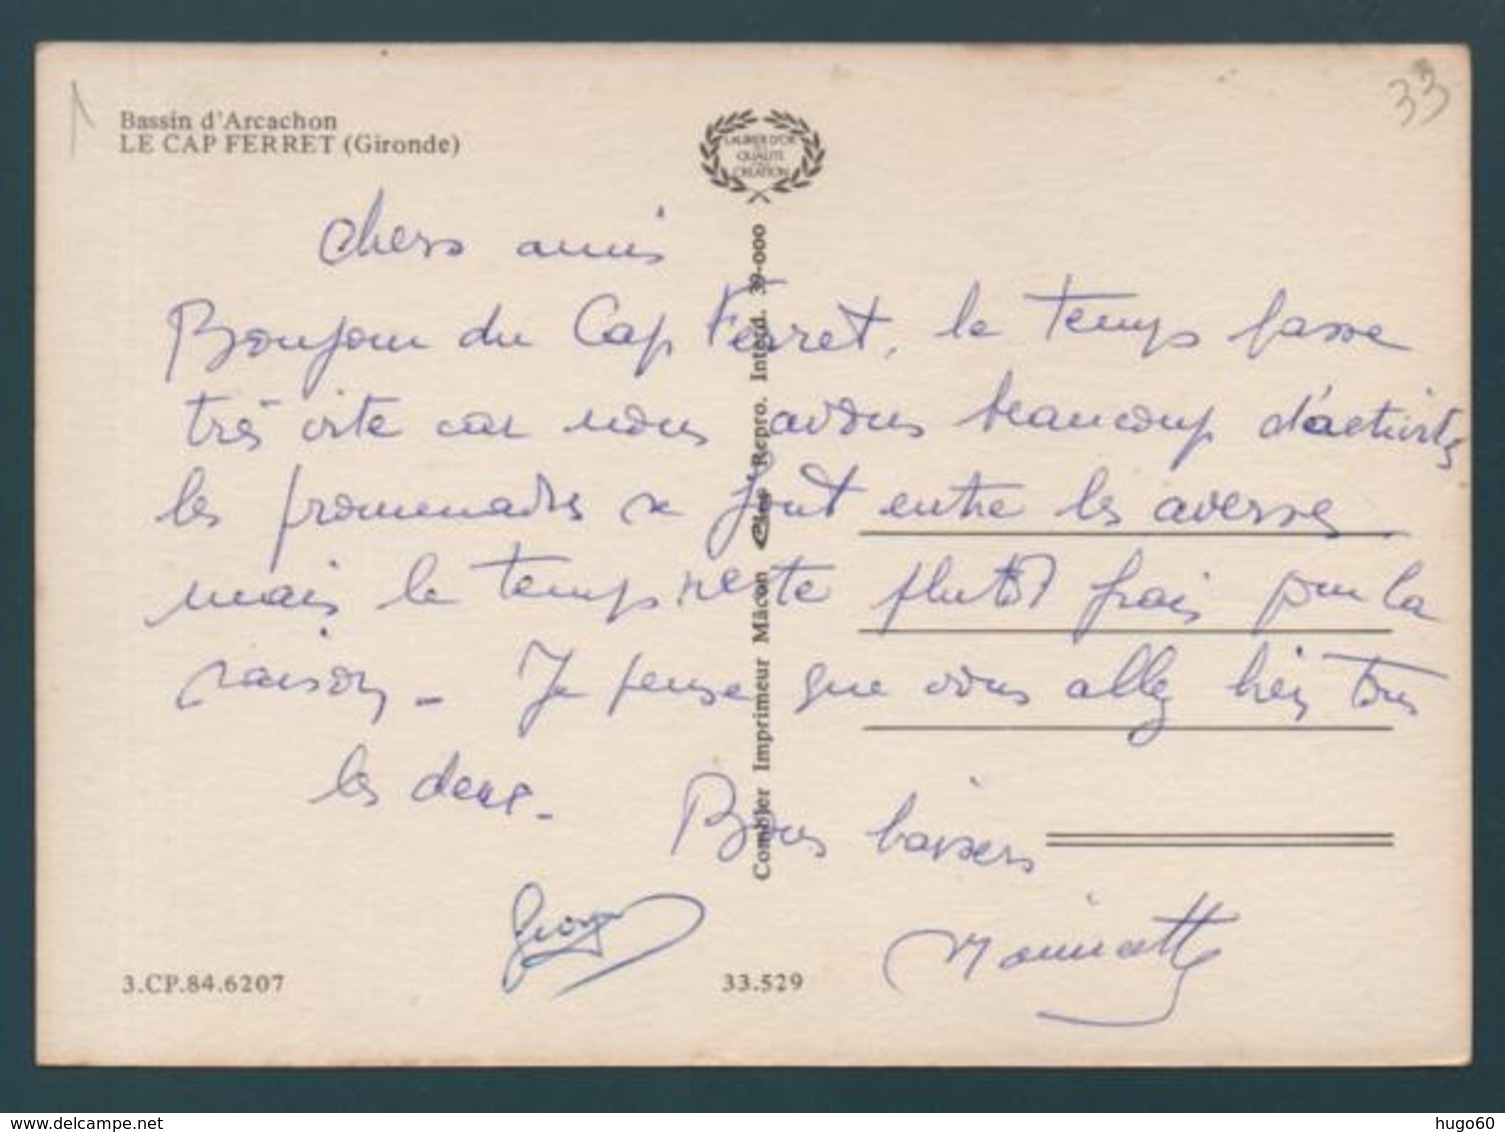 33
Bassin d'Arcachon
LE CAP FERRET (Gironde)
LAURIER D'OR
QUALITE
CREATION
Combier Imprimeur Mâcon Repro. Interd. 39-000
Chers amis
Bonjour du Cap Ferret, le temps passe
très vite car nous avons beaucoup d'activités
les promenades se font entre les averses
mais le temps reste plutôt frais pour la
saison - Je pense que vous allez bien tous
les deux -
Bons baisers
3.CP.84.6207
33.529
hugo60
delcampe.net